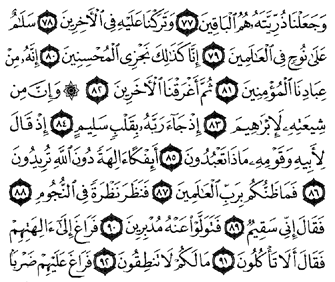 وَجَعَلْنَا ذُرِّيَّتَهُ هُمُ الْبَاقِينَ ﴿٧٧﴾ وَتَرَكْنَا عَلَيْهِ فِي الْآخِرِينَ ﴿٧٨﴾ سَلَامٌ
عَلَى نُوحٍ فِي الْعَالَمِينَ ﴿٧٩﴾ إِنَّا كَذَلِكَ نَجْزِي الْمُحْسِنِينَ ﴿٨٠﴾ إِنَّهُ مِنْ
عِبَادِنَا الْمُؤْمِنِينَ ﴿٨١﴾ ثُمَّ أَغْرَقْنَا الْآخَرِينَ ﴿٨٢﴾ ۞ وَإِنَّ مِن
شِيعَتِهِ لَإِبْرَاهِيمَ ﴿٨٣﴾ إِذْ جَاءَ رَبَّهُ بِقَلْبٍ سَلِيمٍ ﴿٨٤﴾ إِذْ قَالَ
لِأَبِيهِ وَقَوْمِهِ مَاذَا تَعْبُدُونَ ﴿٨٥﴾ أَئِفْكًا آلِهَةً دُونَ اللَّهِ تُرِيدُونَ
﴿٨٦﴾ فَمَا ظَنُّكُم بِرَبِّ الْعَالَمِينَ ﴿٨٧﴾ فَنَظَرَ نَظْرَةً فِي النُّجُومِ ﴿٨٨﴾
فَقَالَ إِنِّي سَقِيمٌ ﴿٨٩﴾ فَتَوَلَّوْا عَنْهُ مُدْبِرِينَ ﴿٩٠﴾ فَرَاغَ إِلَى آلِهَتِهِمْ
فَقَالَ أَلَا تَأْكُلُونَ ﴿٩١﴾ مَا لَكُمْ لَا تَنطِقُونَ ﴿٩٢﴾ فَرَاغَ عَلَيْهِمْ ضَرْبًا